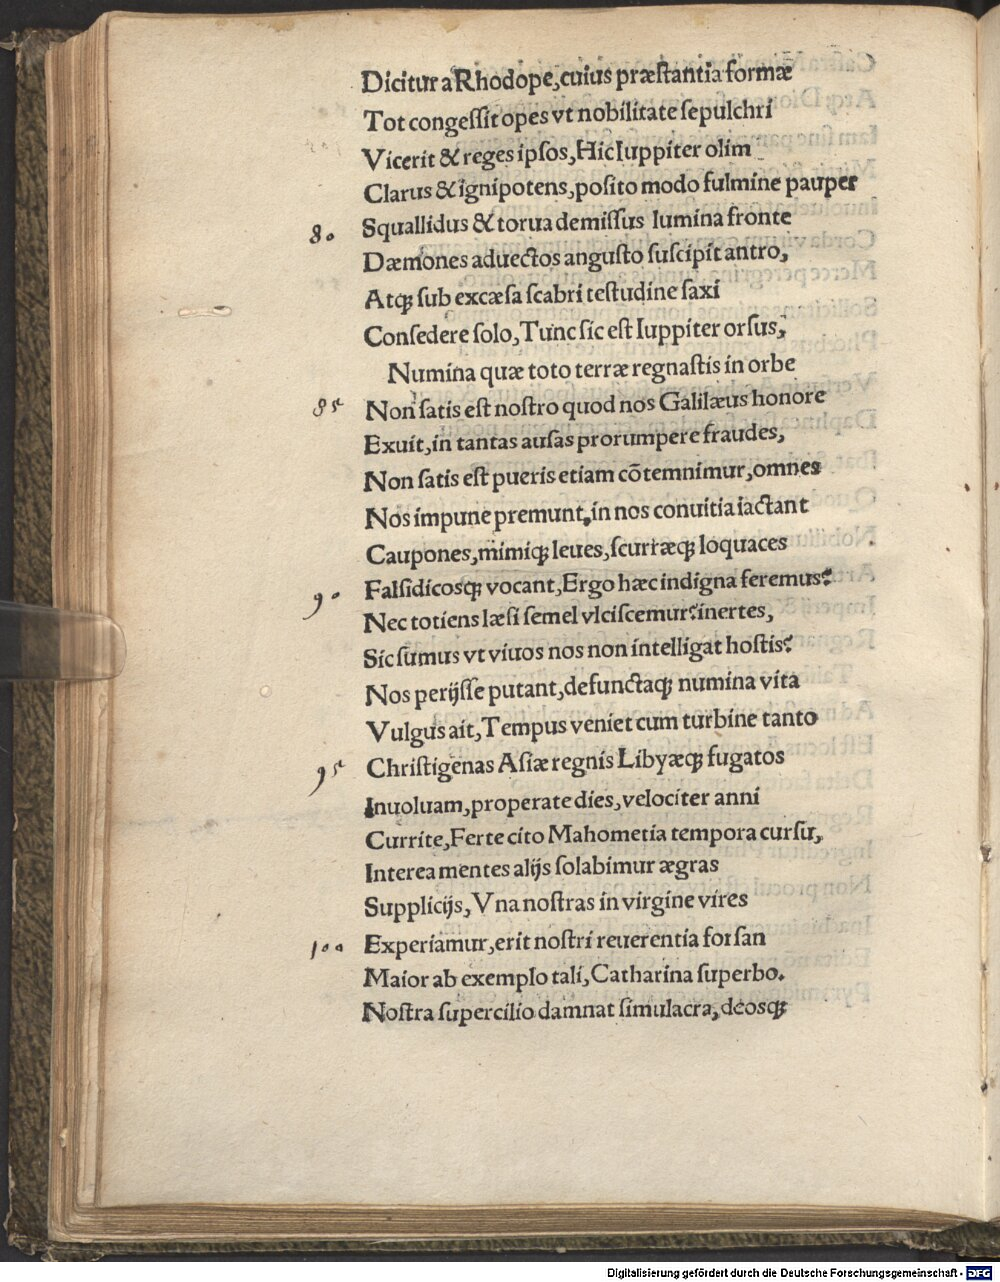 Dicitur a Rhodope, cuius præſtantia formæ
Tot congeſſit opes vt nobilitate ſepulchri
Vicerit & reges ipſos, Hic Iuppiter olim
Clarus & ignipotens, poſito modo fulmine pauper
80 Squallidus & torua demiſſus lumina fronte
Dæmones aduectos anguſto ſuſcipit antro,
Atq; ſub excæſa ſcabri teſtudine ſaxi
Conſedere ſolo, Tunc ſic eſt Iuppiter orſus,
Numina quæ toto terræ regnaſtis in orbe
85 Non ſatis eſt noſtro quod nos Galilæus honore
Exuit, in tantas auſas prorumpere fraudes,
Non ſatis eſt pueris etiam cōtemnimur, omnes
Nos impune premunt, in nos conuitia iactant
Caupones, mimiq; leues, ſcurræq; loquaces
90 Falſidicosq; vocant, Ergo hæc indigna feremus?
Nec totiens læſi ſemel vlciſcemur? inertes,
Sic ſumus vt viuos nos non intelligat hoſtis?
Nos perijſſe putant, defunctaq; numina vita
Vulgus ait, Tempus veniet cum turbine tanto
95 Chriſtigenas Aſiæ regnis Libyæq; fugatos
Inuoluam, properate dies, velociter anni
Currite, Ferte cito Mahometia tempora curſu,
Interea mentes alijs ſolabimur ægras
Supplicijs, Vna noſtras in virgine vires
100 Experiamur, erit noſtri reuerentia forſan
Maior ab exemplo tali, Catharina ſuperbo.
Noſtra ſupercilio damnat ſimulacra, deosq;
Digitalisierung gefördert durch die Deutsche Forschungsgemeinschaft - DFG